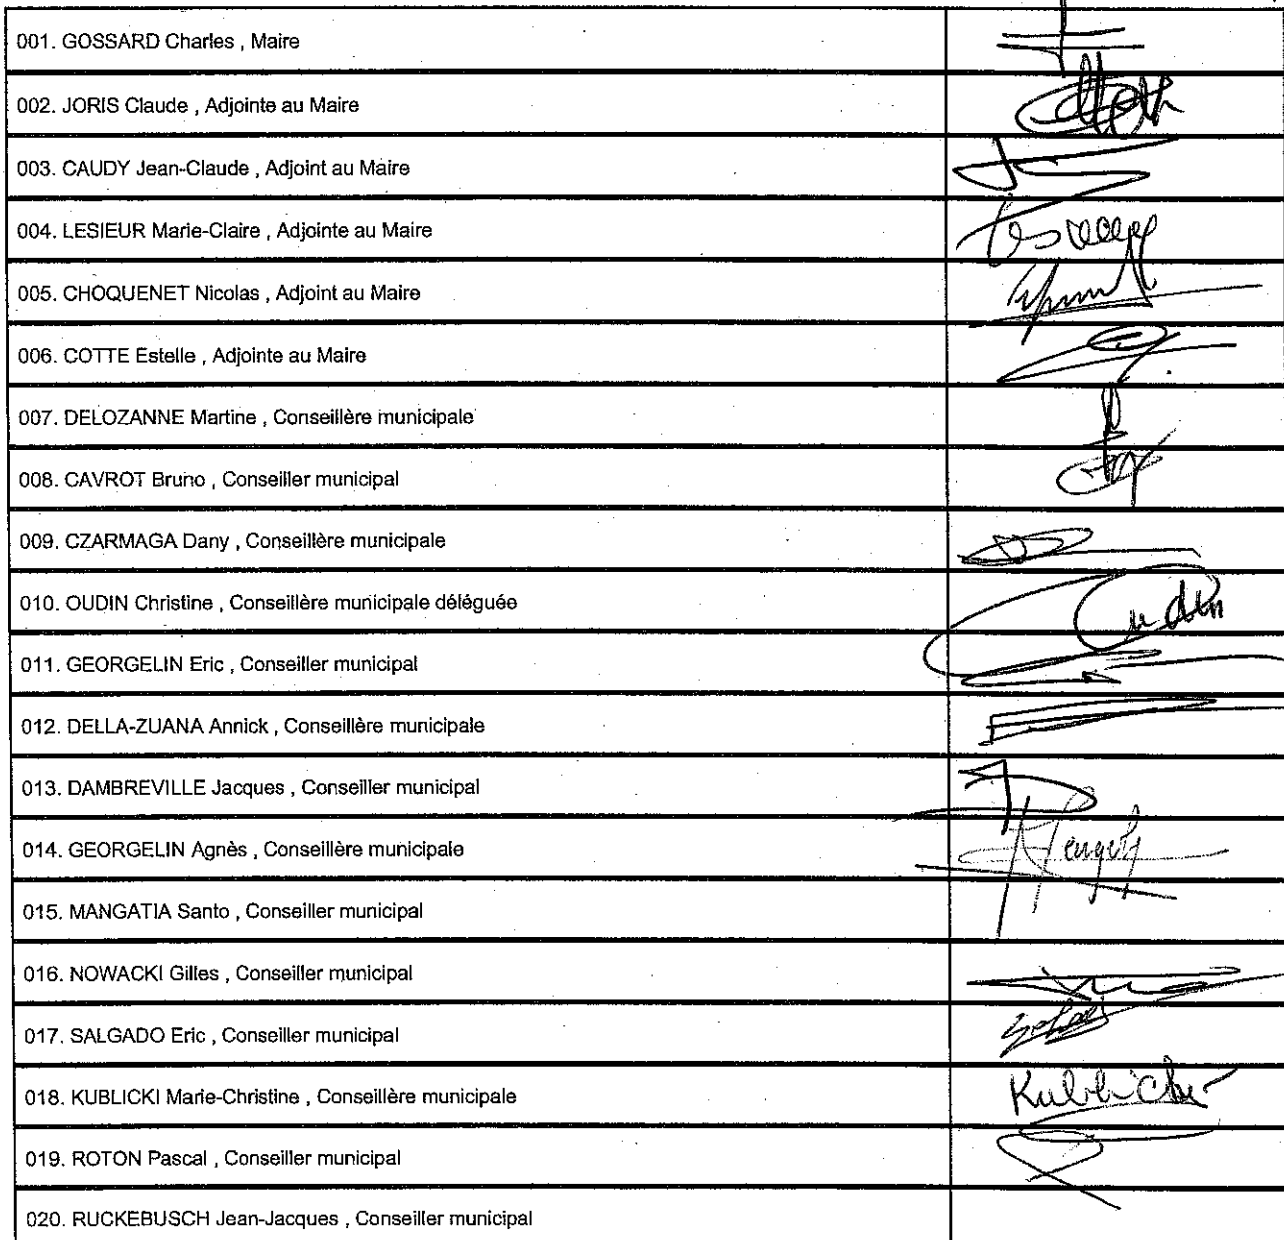 001. GOSSARD Charles , Maire
002. JORIS Claude , Adjointe au Maire
003. CAUDY Jean-Claude , Adjoint au Maire
004. LESIEUR Marie-Claire , Adjointe au Maire
005. CHOQUENET Nicolas , Adjoint au Maire
006. COTTE Estelle , Adjointe au Maire
007. DELOZANNE Martine , Conseillère municipale
008. CAVROT Bruno , Conseiller municipal
009. CZARMAGA Dany , Conseillère municipale
010. OUDIN Christine , Conseillère municipale déléguée
011. GEORGELIN Eric , Conseiller municipal
012. DELLA-ZUANA Annick , Conseillère municipale
013. DAMBREVILLE Jacques , Conseiller municipal
014. GEORGELIN Agnès , Conseillère municipale
015. MANGATIA Santo , Conseiller municipal
016. NOWACKI Gilles , Conseiller municipal
017. SALGADO Eric , Conseiller municipal
018. KUBLICKI Marie-Christine , Conseillère municipale Kublicki
019. ROTON Pascal , Conseiller municipal
020. RUCKEBUSCH Jean-Jacques , Conseiller municipal